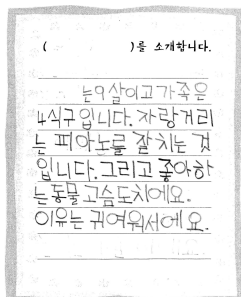 ( )를 소개합니다.
는 9살이고 가족은
4식구 입니다. 자랑거리
는 피아노를 잘 치는 것
입니다. 그리고 좋아하
는동물 고슴도치에요.
이유는 귀여워서에요.